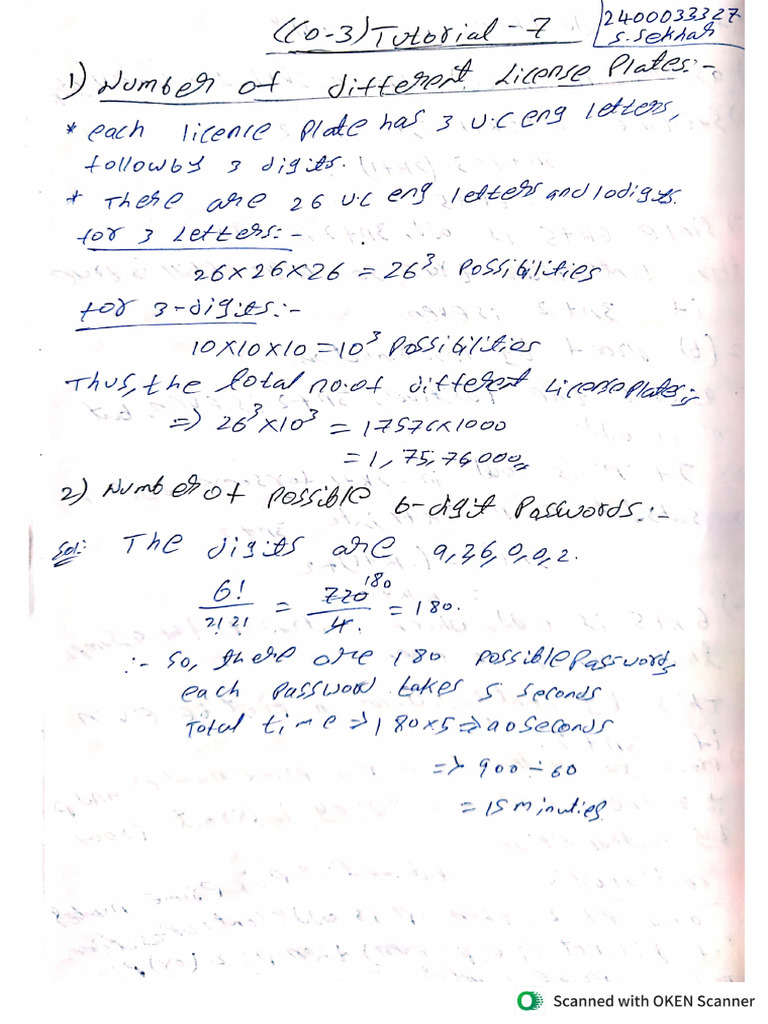 (CO-3) Tutorial - 7
2400033327
S. Sekhar
1) Number of different License Plates:-
* each licence plate has 3 U.C eng letters,
follow by 3 digits.
* There are 26 U.C eng letters and 10 digits.
for 3 Letters:-
26×26×26 = 26³ Possibilities
for 3-digits:-
10×10×10 = 10³ Possibilities
Thus, the total no.of different License Plates is
=> 26³×10³ = 17576×1000
= 1,75,76,000
2) Number of possible 6-digit Passwords:-
Sol: The digits are 9,2,6,0,0,2.
6!/2!2! = 720/4 180 = 180.
:- So, there are 180 possible Passwords
each password takes 5 seconds
Total time => 180×5 => 900 seconds
=> 900 ÷ 60
= 15 minuties
Scanned with OKEN Scanner